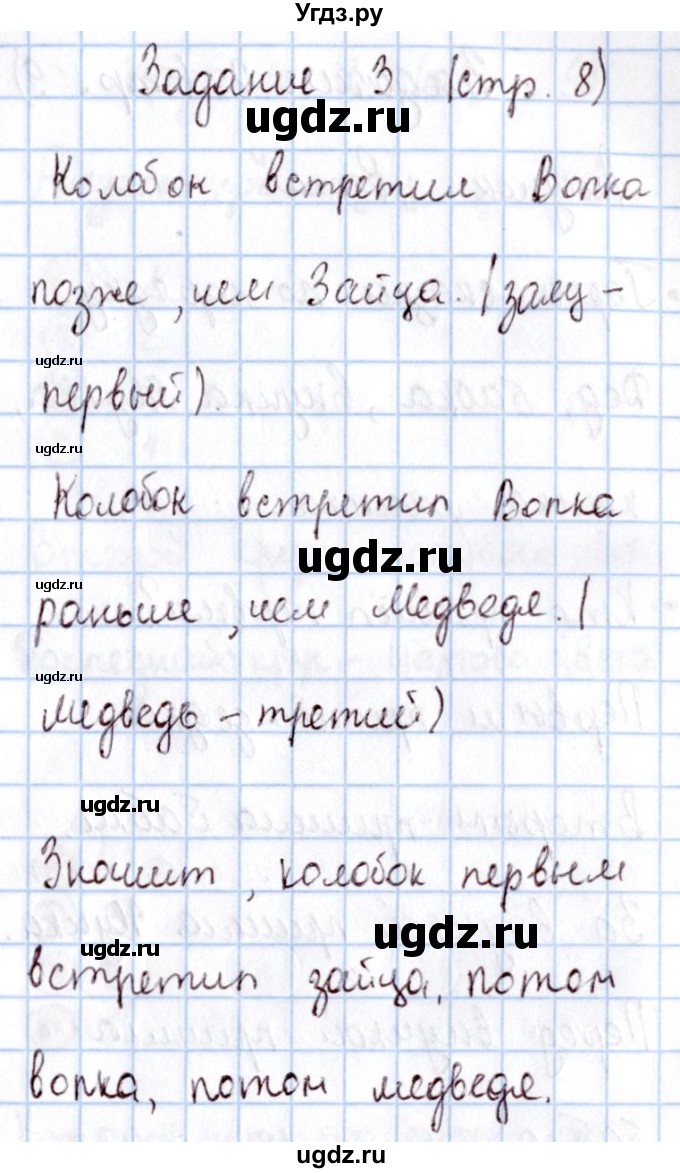 Угдз.ру
Задание 3 (стр. 8)
ugdz.ru
Колобок встретил Волка
позже, чем Зайца. (заяц-
ugdz.ru
первый).
ugdz.ru
Колобок встретил Волка
ugdz.ru
ugdz.ru
раньше, чем Медведя. (
ugdz.ru
медведь - третий)
ugdz.ru
Значит, колобок первым
ugdz.ru
ugdz.ru
встретил зайца, потом
волка, потом медведя.
ugdz.ru